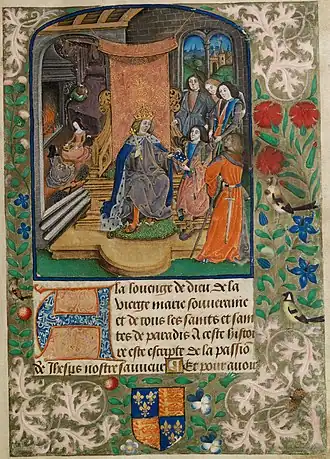 A la louenge de dieu de la
vierge marie souveraine
et de tous les saints et sain
tes de paradis a ceste histoi
re est escripte de la passiõ
de Ihesus nostre sauueur Et pour auoir